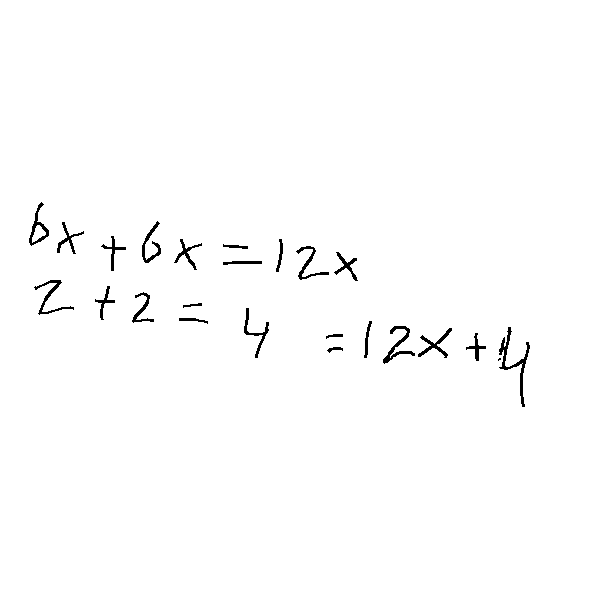 6x + 6x = 12x
2 + 2 = 4 = 12x + 4